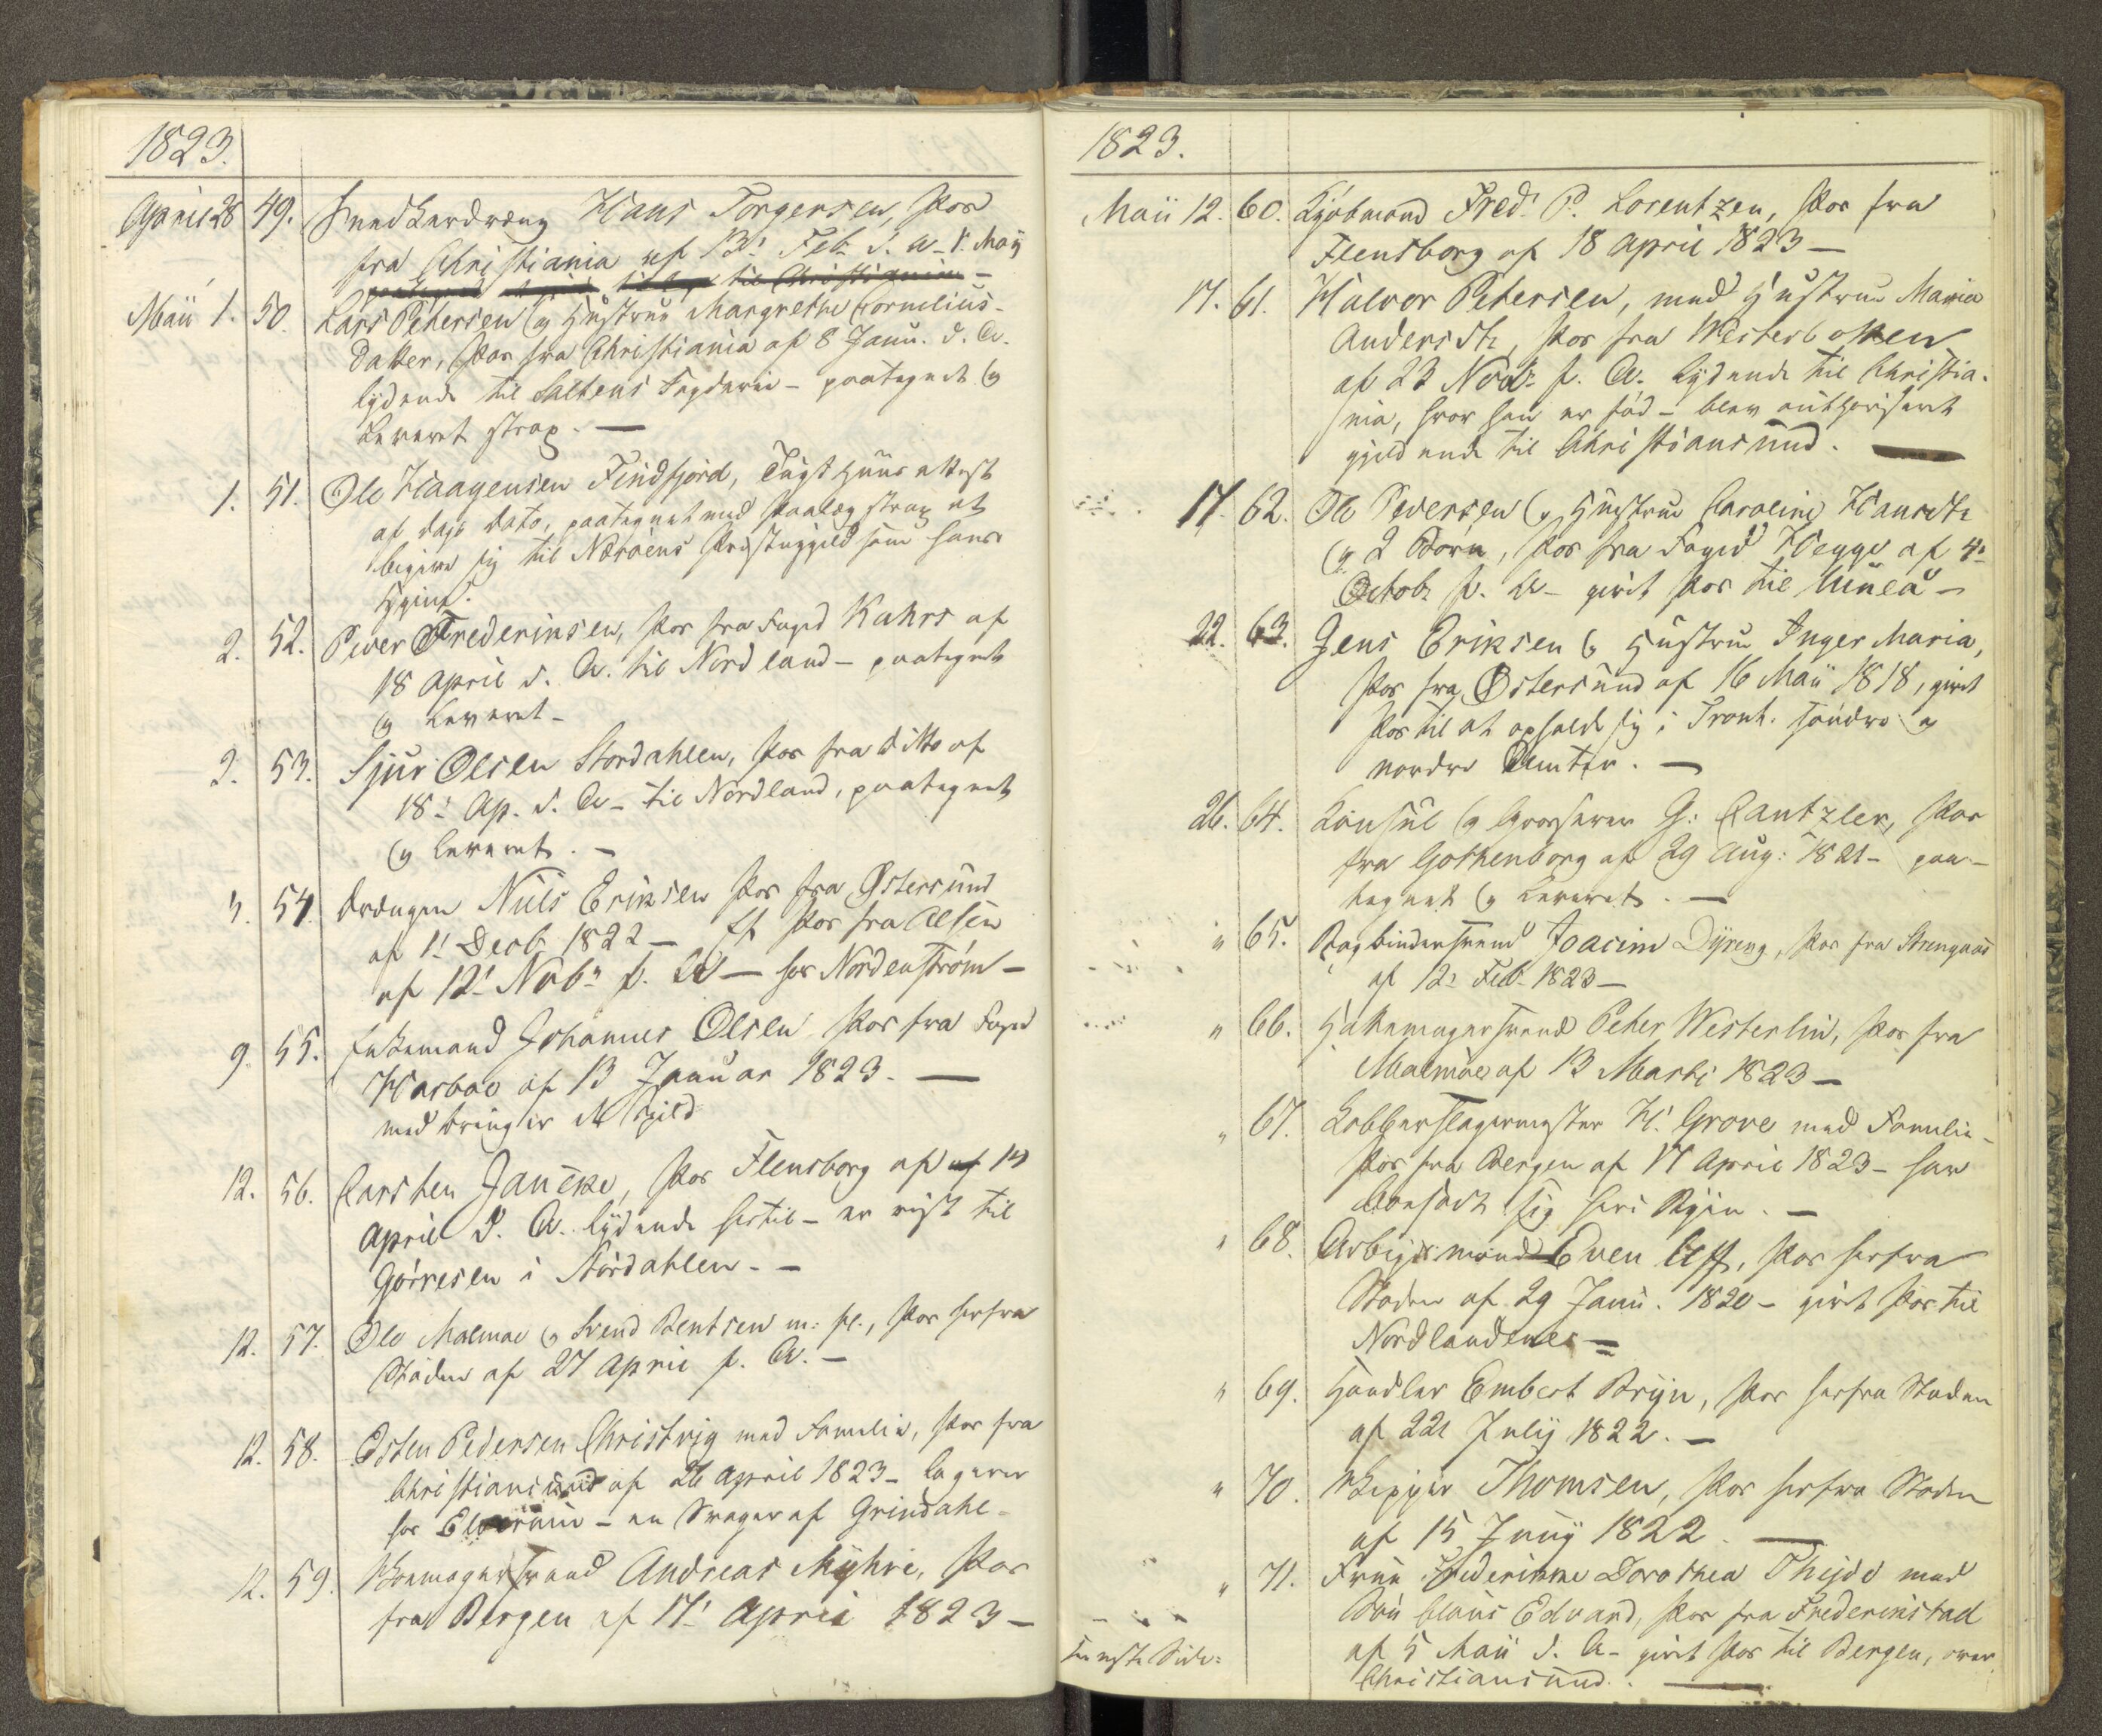 1823.
April 28 49. Snedkerdreng Hans Torgersen, Pas
fra Christiania af 13! Feb. d. A. 1. Maij
til Christiania
Maii 1. 50. Lars Petersen og Hustrue Margrethe Cornelius-
datter, Pas fra Christiania af 8 Janu. d. A.
lydende til Saltens Fogderie - paategnet og
leveret strax. —
1. 51. Ole Haagensen Findfjord, Tugthuus attest
af dags dato, paategnet med Paalæg strax at
begive sig til Nærøens Præstegjeld som hans
Hjem.
2. 52. Peder Frederiksen, Pas fra Foged Kahrs af
18 April d. A. til Nordland - paategnet
og leveret -
2. 53. Sjur Olsen Stordahlen, Pas fra ditto af
18! Ap. d. A - til Nordland, paategnet
og leveret. -
54. Drengen Niels Eriksen Pas fra Østersund
af 1! Decb 1822 - Pas fra Alsen
af 12! Nobr f. A — hos Nordenstrøm -
9. 55. Enkemand Johannes Olsen Pas fra Foged
Harboe af 13 Januar 1823. —
medbringer
12. 56. Carsten Jancke, Pas Flensborg af 14
April d. A. lydende hertil - er reist til
Gørresen i Størdahlen. -
12. 57. Ole Malmoe og Svend Bentsen m: fl., Pas herfra
Staden af 27 April f. A. -
12. 58. Østen Pedersen Christvig med Familie, Pas fra
Christiansund af 26 April 1823 - logerer
hos - en Svoger af Grindahl -
12. 59. Skomagersvend Andreas Myhre, Pas
fra Bergen af 17! April 1823 -
1823.
Maii 12. 60. Kjøbmand Fred! P. Lorentzen, Pas fra
Flensborg af 18 April 1823 —
17. 61. Halvor Petersen, med Hustrue Maria
Andersdtr, Pas fra Westerbotten
af 23 Novbr f. A. lydende til Christia-
nia, hvor han er fød - blev authoriseret
gjeldende til Christiansund. —
17. 62. Ole Pedersen og Hustrue Caroline Hansdtr
og 2 Børn, Pas fra Foged Hegge af 4!
Octob. f. A - givet Pas til Umeå -
22. 63. Jens Eriksen og Hustrue Inger Maria,
Pas fra Østersund af 16 Maii 1818, givet
Pas til at opholde sig i Tronh. søndre og
nordre Amter. —
26. 64. Konsul og Grosserer G: Cantzler, Pas
fra Gothenborg af 29 Aug: 1821 - paa-
tegnet og leveret. —
" 65. Bogbindersvend Joacim Dyreng, Pas fra Strengnæs
af 12! Feb. 1823 —
" 66. Hattemagersvend Peter Westerlin, Pas fra
Malmøe af 13 Marts 1823 —
" 67. Kobberslagermester H! Grove med Familie -
Pas fra Bergen af 17 April 1823 - har
bosadt sig her i Byen. —
" 68. Arbejdsmand Even Uff, Pas herfra
Staden af 29 Janu. 1820 - givet Pas til
Nordlandene —
" 69. Handler Embert Bryn, Pas herfra Staden
af 22! Julij 1822. —
" 70. Skipper Thomsen, Pas herfra Staden
af 15 Junij 1822. —
" 71. Frue Frederikke Dorothea Thejde med
Søn Claus Edvard, Pas fra Frederikstad
af 5 Maii d. A - givet Pas til Bergen, over
Christiansund. —
næste Side: